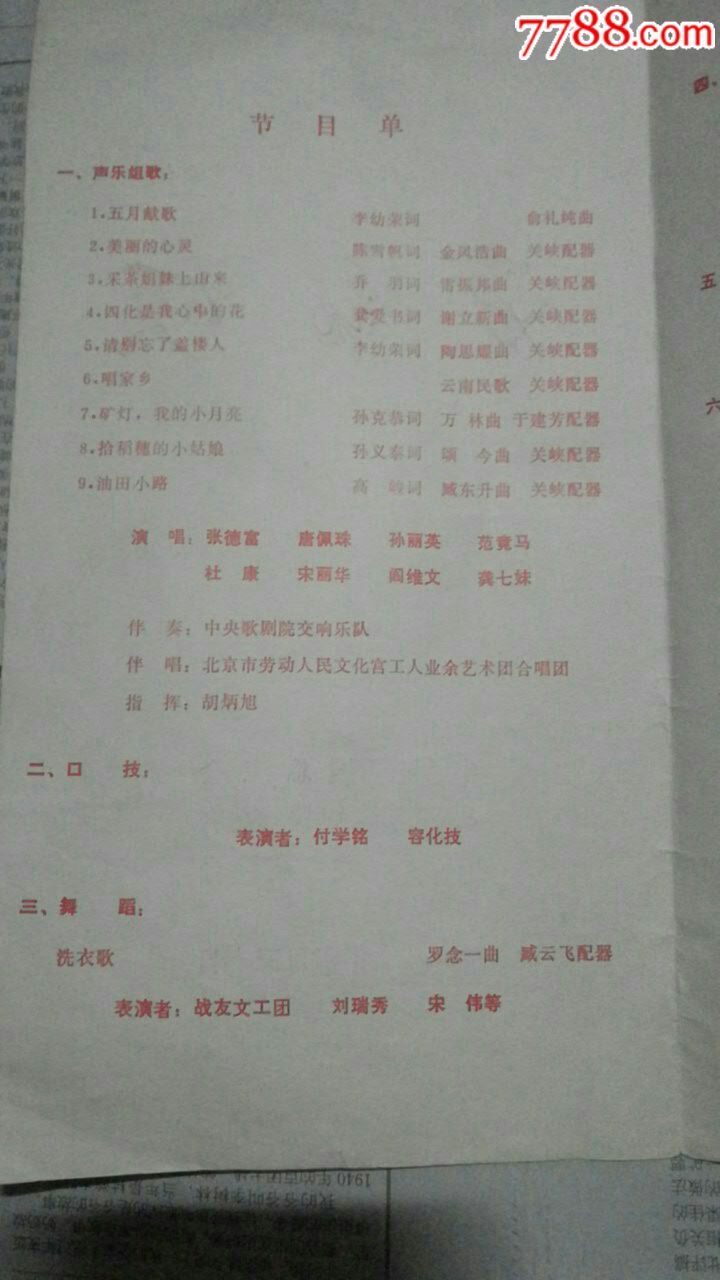 7788.com
节 目 单
一、声乐组歌：
1.五月献歌 李幼荣词 俞礼纯曲
2.美丽的心灵 陈雪帆词 金凤浩曲 关峡配器
3.采茶姐妹上山来 乔 羽词 雷振邦曲 关峡配器
4.四化是我心中的花 龚爱书词 谢立新曲 关峡配器
5.请别忘了盖楼人 李幼荣词 陶思耀曲 关峡配器
6.唱家乡 云南民歌 关峡配器
7.矿灯，我的小月亮 孙克恭词 万 林曲 于建芳配器
8.拾稻穗的小姑娘 孙义泰词 颂 今曲 关峡配器
9.油田小路 高 峻词 臧东升曲 关峡配器
演 唱：张德富 唐佩珠 孙丽英 范竟马
杜 康 宋丽华 阎维文 龚七妹
伴 奏：中央歌剧院交响乐队
伴 唱：北京市劳动人民文化宫工人业余艺术团合唱团
指 挥：胡炳旭
二、口 技：
表演者：付学铭 容化技
三、舞 蹈：
洗衣歌 罗念一曲 臧云飞配器
表演者：战友文工团 刘瑞秀 宋 伟等
四.
五
六